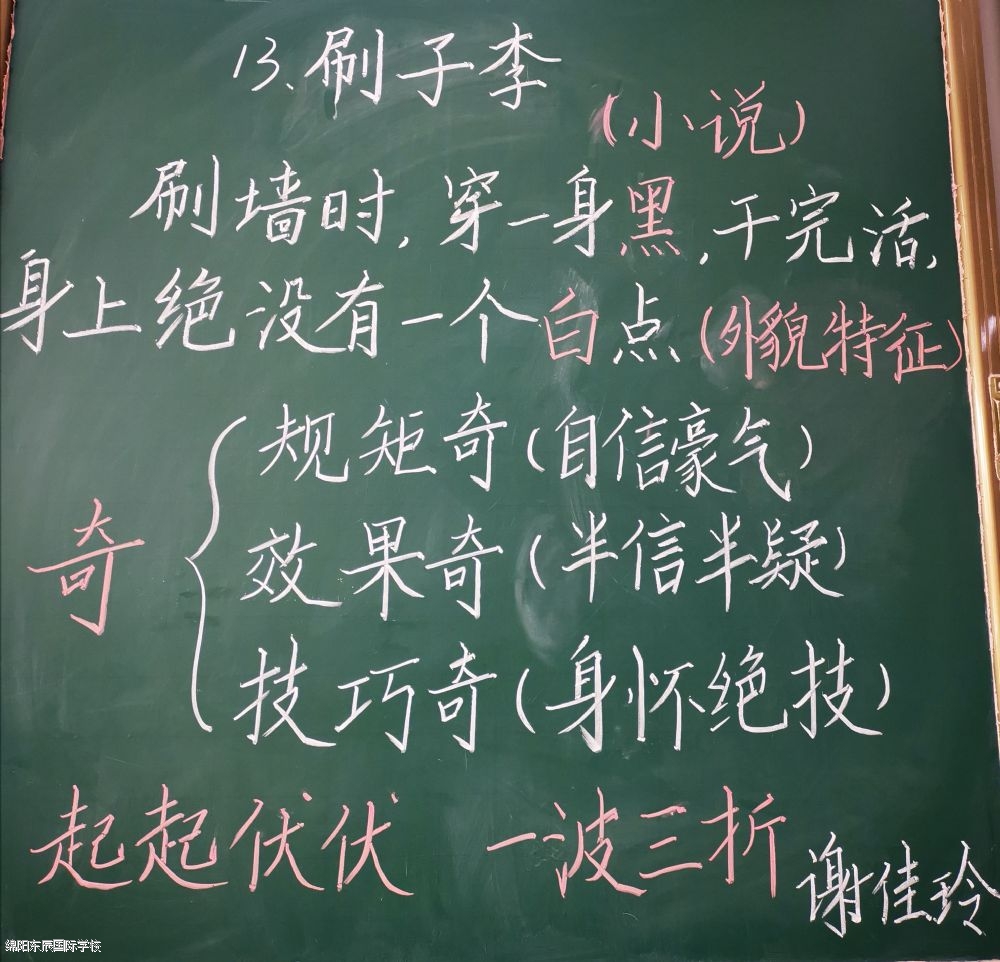 13.刷子李
(小说)
刷墙时,穿一身黑,干完活,
身上绝没有一个白点(外貌特征)
规矩奇(自信豪气)
奇
效果奇(半信半疑)
技巧奇(身怀绝技)
起起伏伏 一波三折
谢佳玲
绵阳东辰国际学校